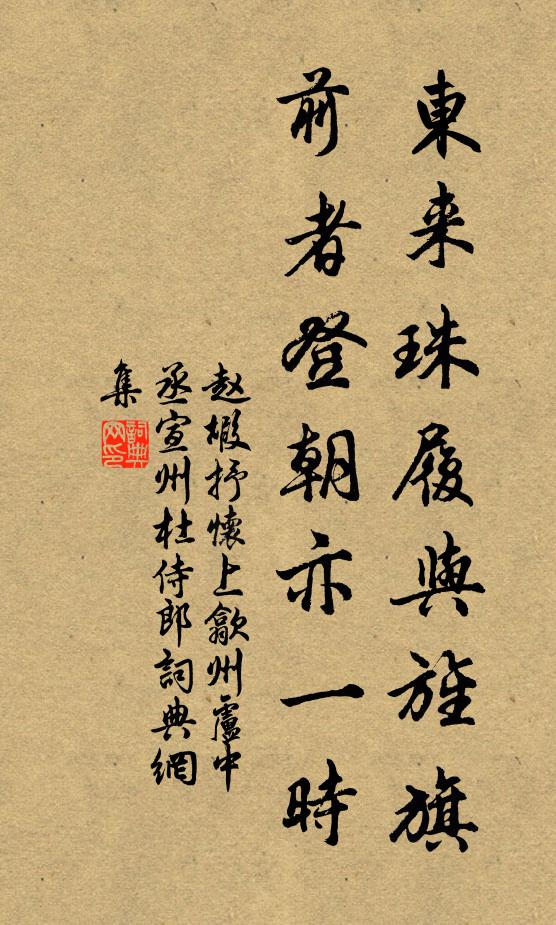 東来珠履與旌旗
前者登朝亦一時
赵嘏抒懷上歙州盧中
丞宣州杜侍郎詞典網
集
詞典
网印